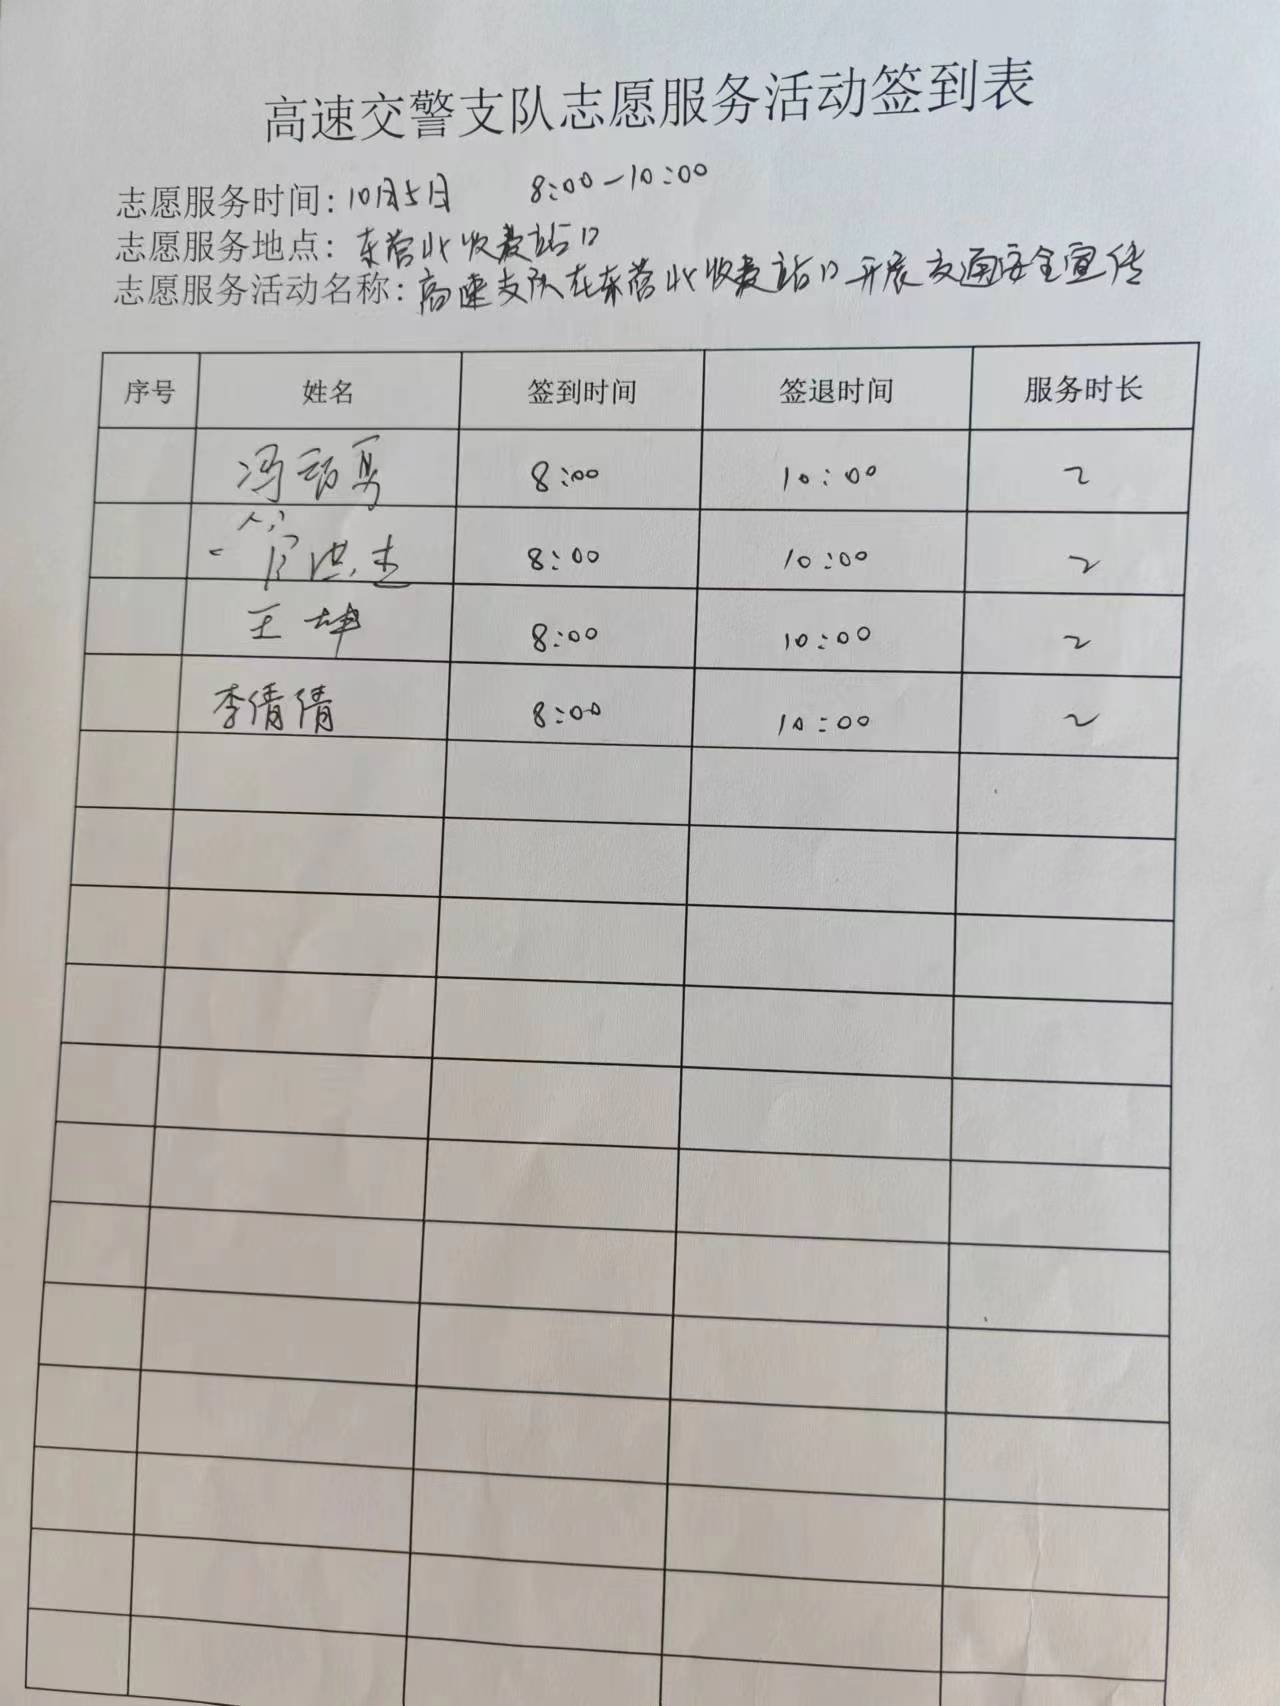 高速交警支队志愿服务活动签到表
志愿服务时间：10月5日 8:00-10:00
志愿服务地点：东营北收费站口
志愿服务活动名称：高速支队在东营北收费站口开展交通安全宣传
序号 姓名 签到时间 签退时间 服务时长
冯 勇 8:00 10:00 2
洪杰 8:00 10:00 2
王坤 8:00 10:00 2
李倩倩 8:00 10:00 2